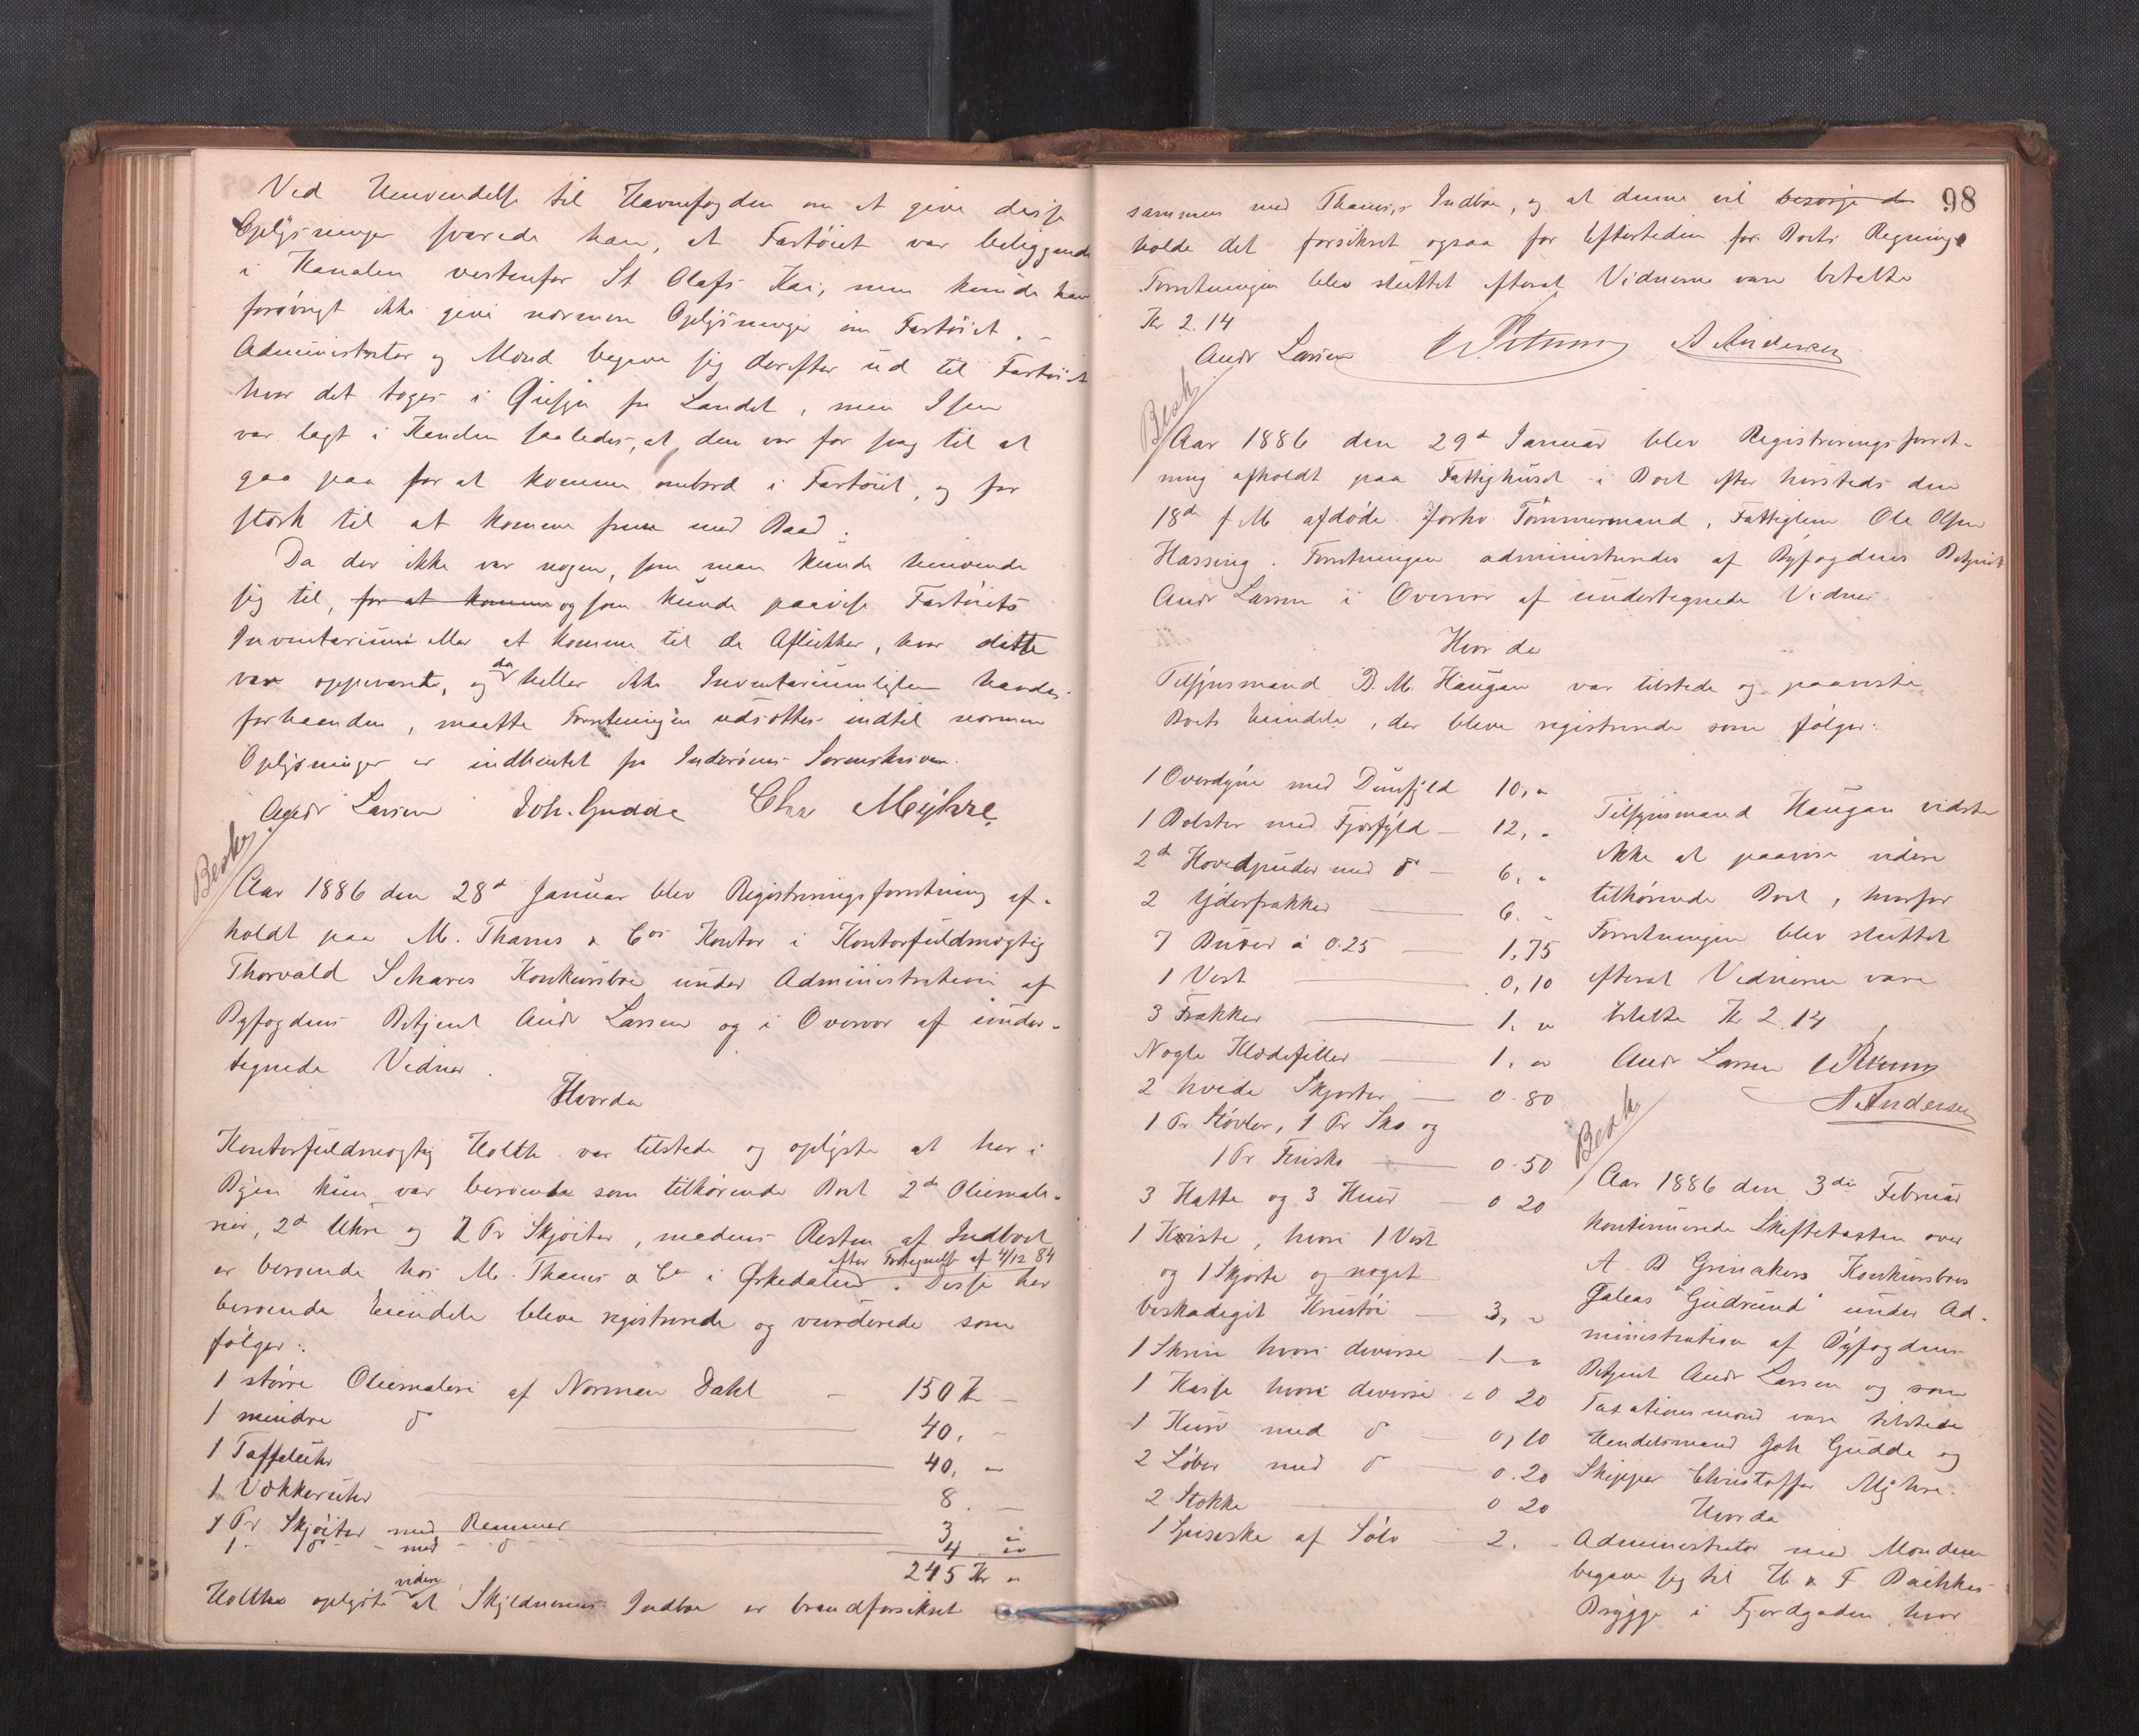 Ved Henvendelse til Havnefogden om at give disse
Oplysninger svarede han, at Fartøiet var beliggende
i Kanalen vestenfor St Olafs Kai, men kunde han
forøvrigt ikke give nærmere Oplysninger om Fartøiet.
Administrator og Mænd begave sig derefter ud til Fartøiet
hvor det toges i Øiesyn fra Landet, men Isen
var lagt i Kanalen saaledes, at den var for svag til at
gaa paa for at komme ombord i Fartøiet, og for
stærk til at komme frem med Baad.
Da der ikke var nogen, som man kunde henvende
sig til, for at komme og som kunde paavise Fartøiets
Inventarium eller at komme til de Aflukker, hvor dette
var oppevaret, og da heller ikke Inventariumlisten havdes
forhaanden, maatte Forretningen udsættes indtil nærmere
Oplysninger er indhentet fra Inderøens Sorenskriver.
Andr Larsen Joh. Gudde Chr Myhre
Besk
Aar 1886 den 28de Januar blev Registreringsforretning af-
holdt paa M. Thams & Cos Kontor i Kontorfuldmægtig
Thorvald Schares Konkursbo under Administration af
Byfogdens Betjent Andr Larsen og i Overvær af under-
tegnede Vidner.
Hvorda
Kontorfuldmægtig Holthe var tilstede og oplyste at her i
Byen kun var beroende som tilhørende Boet 2de Oliemale-
rier, 2de Uhre og 2 Pr Skjøiter, medens Resten af Indboet
efter Fortegnelse af 4/12 84
er beroende hos M. Thams & Co i Ørkedalen. Disse her
beroende Eiendele bleve registrerede og vurderede som
følger:
1 større Oliemaleri af Norman Dahl - 150 Kr -
1 mindre do 40, -
1 Taffeluhr 40, -
1 Vækkeruhr 8. -
1 Pr Skjøiter med Remmer 3 "
1 - do - med - do 4 "
245 Kr "
Holthe oplyste videre at Skyldnerens Indbo er brandforsikret
98
sammen med Thams's Indbo, og at denne vil besørge de
holde det forsikret ogsaa for Eftertiden for Boets Regning
Forretningen blev sluttet efterat Vidnerne vare betalte
Kr 2.14
Andr Larsen A Andersen
Besk
Aar 1886 den 29de Januar blev Registreringsforret-
ning afholdt paa Fattighuset i Boet efter hersteds den
18de f M afdøde forhv Tømmermand, Fattiglem Ole Olsen
Hassing. Forretningen administreredes af Byfogdens Betjent
Andr Larsen i Overvær af undertegnede Vidner
Hvor da
Tilsynsmand B. M. Haugan var tilstede og paaviste
Boets Eiendele, der bleve registrerede som følger:
1 Overdyne med Dunfyld 10, "
1 Bolster med Fjærfyld - 12, "
2de Hovedpuder med do - 6, "
2 Yderfrakker 6. -
7 Buxer à 0.25 1,75
1 Vest 0,10
3 Frakker 1. "
Nogle Klædefiller 1. "
2 hvide Skjorter 0-80
1 Pr Støvler, 1 Pr Sko og
1 Pr Finsko 0-50
3 Hatte og 3 Huer 0 20
1 Kiste, hvori 1 Vest
og 1 Skjorte og noget
beskadiget Kristøi - 3, "
1 Skrin hvori diverse - 1 - "
1 Kasse hvori diverse - 0 20
1 Kurv med do - 0,10
2 Løber med do 0.20
2 Stokke 0 20
1 Spiseske af Sølv - 2. -
Tilsynsmand Haugan vidste
ikke at paavise videre
tilhørende Boet, hvorfor
Forretningen blev sluttet
efterat Vidnerne vare
betalte Kr 2.14
Andr Larsen
A Andersen
Besk
Aar 1886 den 3die Februar
kontinuerede Skifteretten over
A. B Grinakers Konkursboes
Galeas "Gudrund" under Ad-
ministration af Byfogdens
Betjent Andr Larsen og som
Taxationsmænd vare tilstede
Handelsmand Joh Gudde og
Skipper Christoffer Myhre.
Hvorda
Administrator med Mændene
begave sig til H & F Bachkes
Brygge i Fjordgaden hvor